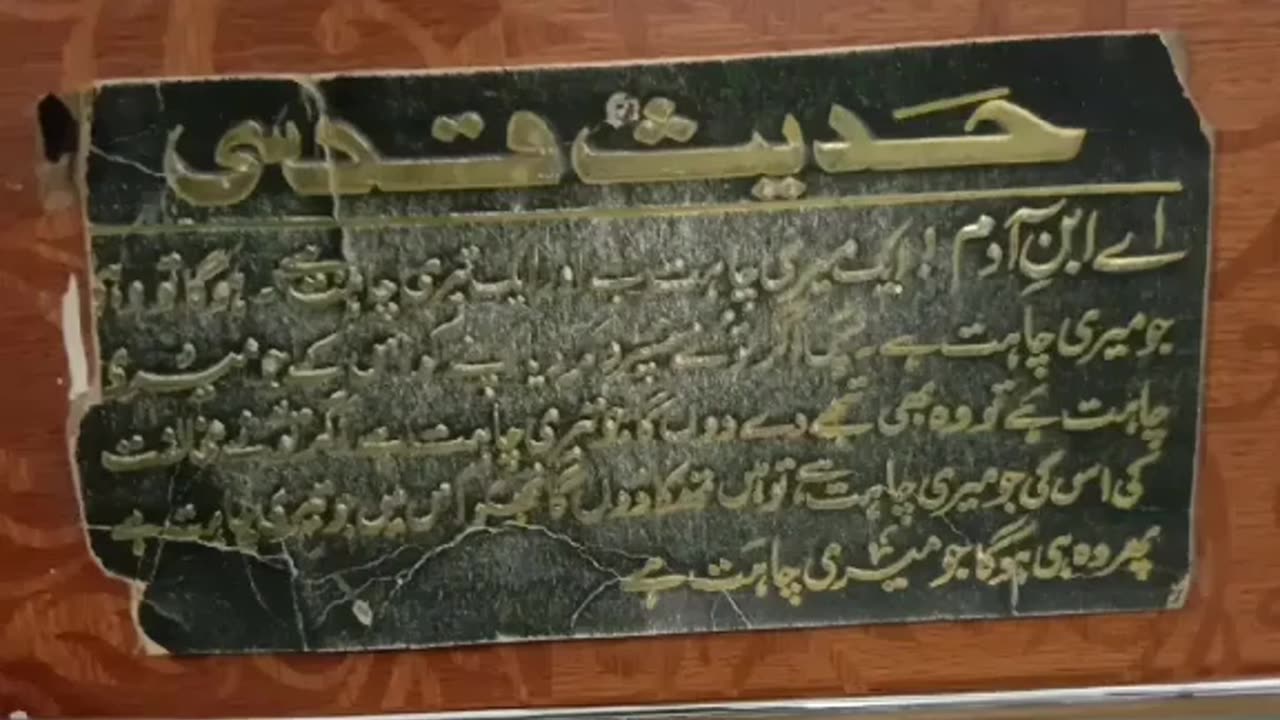 حدیث قدسی
اے ابنِ آدم ! ایک میری چاہت ہے اور ایک تیری چاہت ہے۔ ہوگا تو وہی
جو میری چاہت ہے۔ پس اگر تو نے سپرد کر دیا اپنے کو اس کے جو میری
چاہت ہے تو وہ بھی تجھے دے دوں گا جو تیری چاہت ہے۔ اگر تو نے مخالفت
کی اس کی جو میری چاہت ہے تو میں تھکا دوں گا تجھ کو اس میں جو تیری چاہت ہے
پھر وہ ہی ہوگا جو میری چاہت ہے